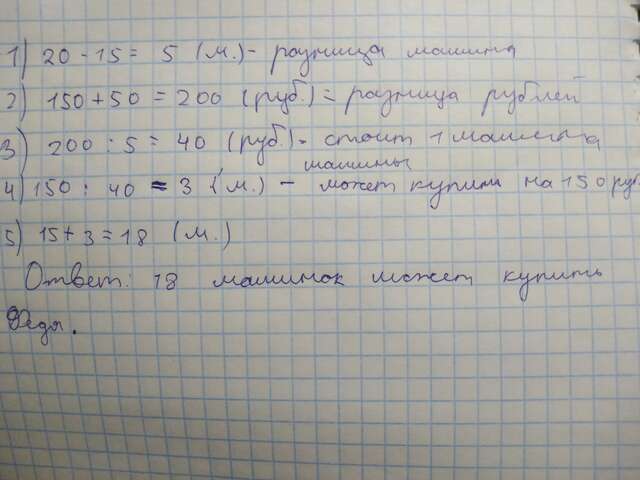 1) 20 - 15 = 5 (м.) - разница машина
2) 150 + 50 = 200 (руб.) = разница рублей
3) 200 : 5 = 40 (руб.) - стоит 1 машина
4) 150 : 40 = 3 (м.) - машины может купить на 150 руб
5) 15 + 3 = 18 (м.)
Ответ: 18 машинок может купить
Федя.